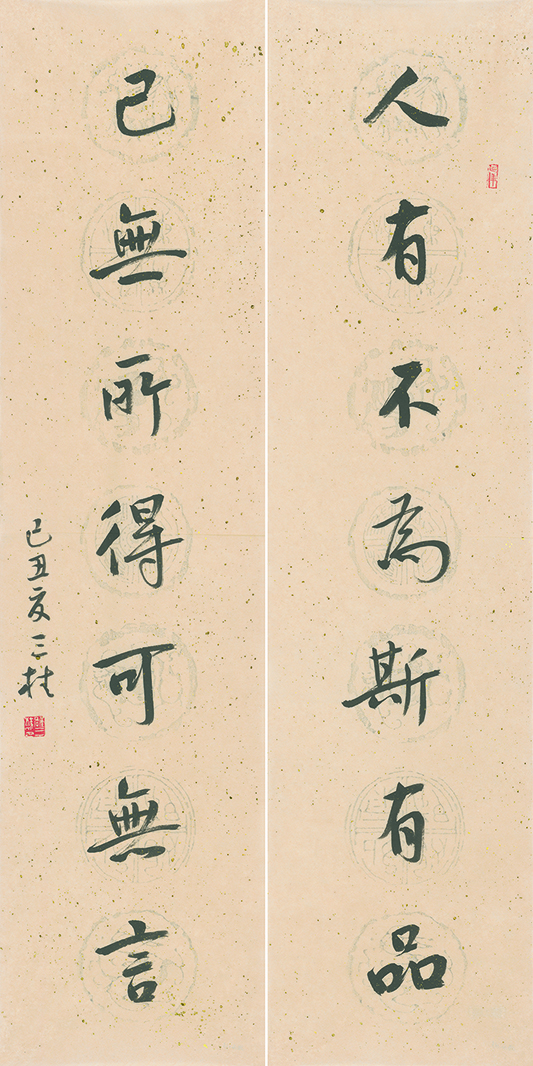 人有不為斯有品
己無所得可無言
己丑夏